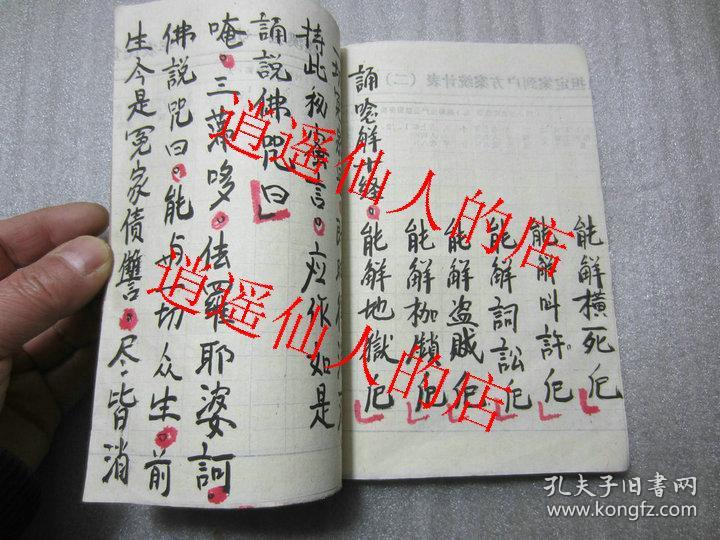 能解橫死厄
能解叫許厄
能解詞訟厄
能解盗賊厄
能解枷鎖厄
誦唸解十經。能解地獄厄
持此秘密言。应作如是
誦說佛咒曰
唵。三䓁哆。佉羅耶婆訶
佛説咒曰。能与一切众生。前
生今是冤家债讐。尽皆消
担定案到户方案统计表（二）
逍遥仙人的店
逍遥仙人的店
孔夫子旧书网
www.kongfz.com